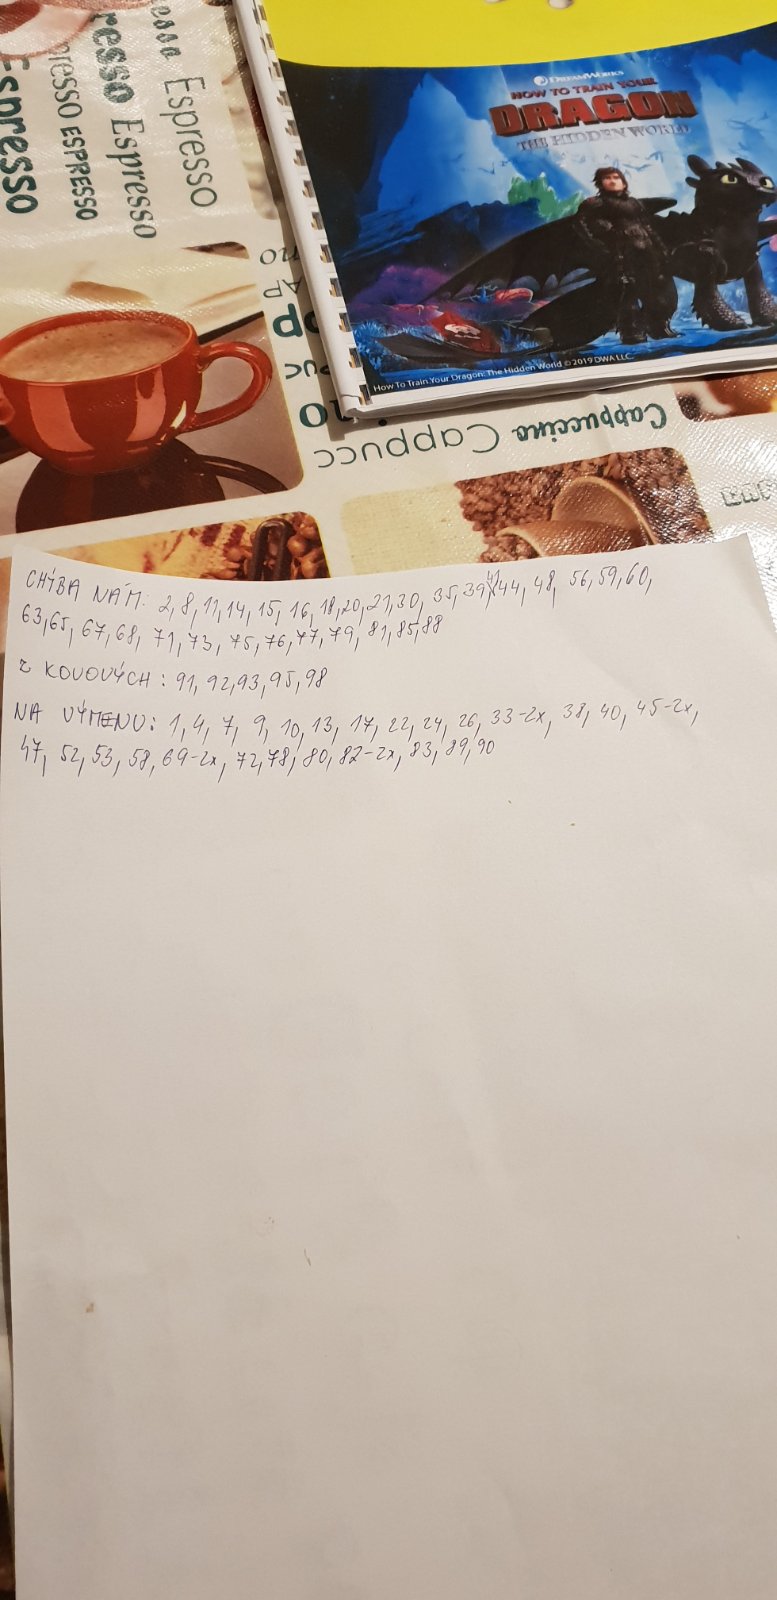 Espresso
resso
Espresso
presso
ESPRESSO
resso
Espresso
Espresso
DREAMWORKS
HOW TO TRAIN YOUR
DRAGON
THE HIDDEN WORLD
How To Train Your Dragon: The Hidden World © 2019 DWA LLC.
Cappucc
Cappuccino
CHÝBA NÁM: 2, 8, 11, 14, 15, 16, 18, 20, 21, 30, 35, 39, 41, 44, 48, 56, 59, 60,
63, 65, 67, 68, 71, 73, 75, 76, 77, 79, 81, 85, 88
Z KOVOVÝCH: 91, 92, 93, 95, 98
NA VÝMENU: 1, 4, 7, 9, 10, 13, 17, 22, 24, 26, 33-2x, 38, 40, 45-2x,
47, 52, 53, 58, 69-2x, 72, 78, 80, 82-2x, 83, 89, 90